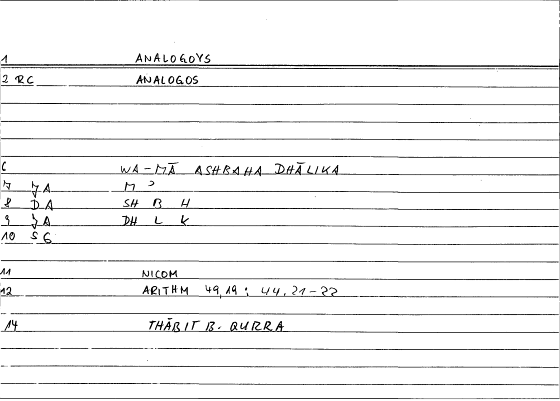 1 ANALOGOYS
2 RC ANALOGOS
6 WA-MĀ ASHBAHA DHĀLIKA
7 JA M ʾ
8 DA SH B H
9 JA DH L K
10 SG
11 NICOM
12 ARITHM 49,19 : 44,21-22
14 THĀBIT B. QURRA